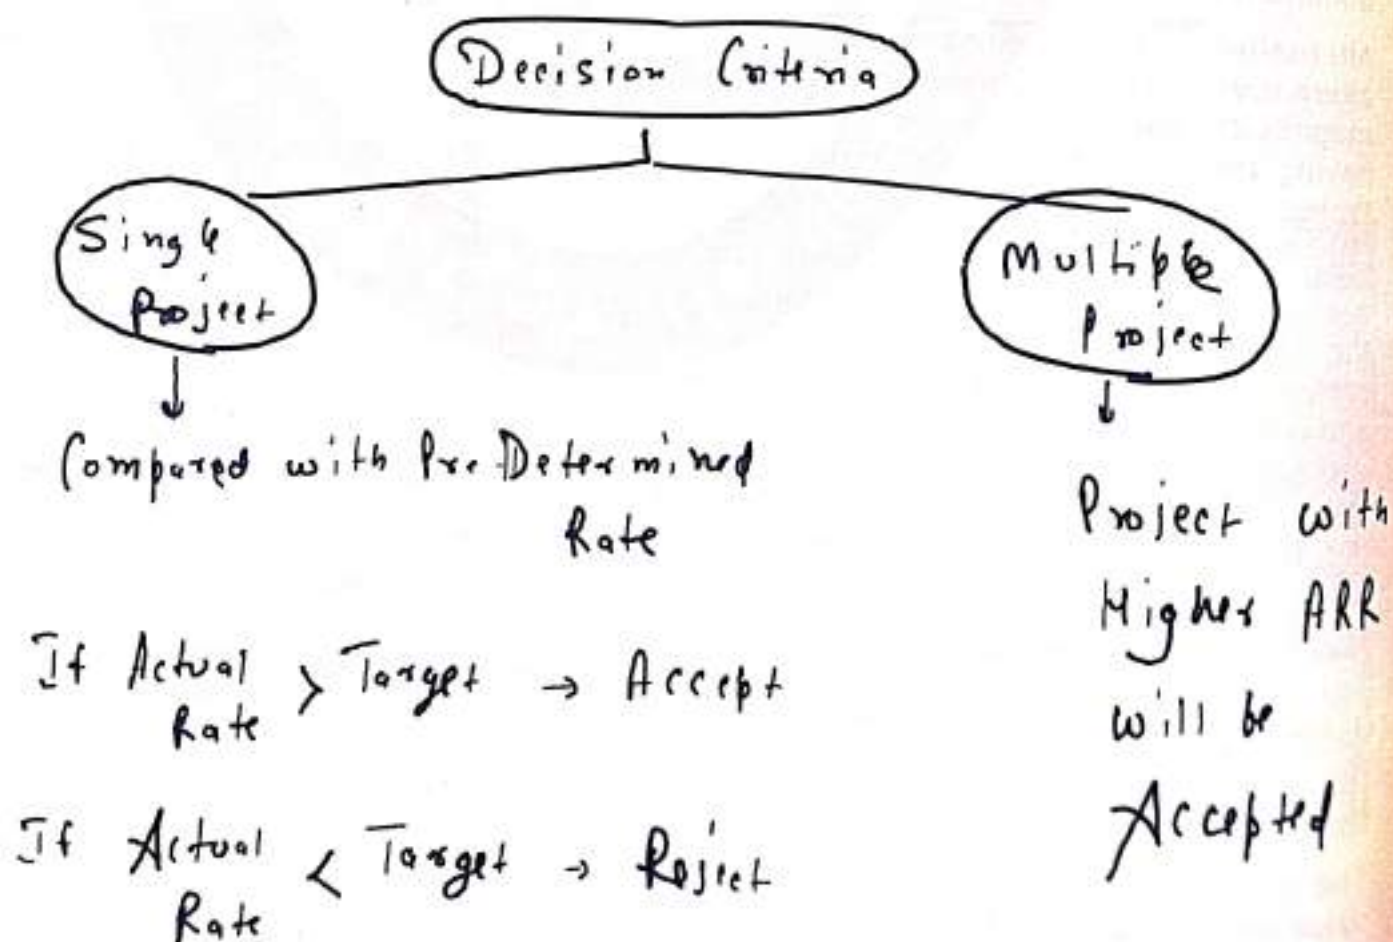 Decision Criteria
Single
Project
Multiple
Project
Compared with Pre-Determined
Rate
If Actual
Rate > Target → Accept
If Actual
Rate < Target → Reject
Project with
Higher ARR
will be
Accepted